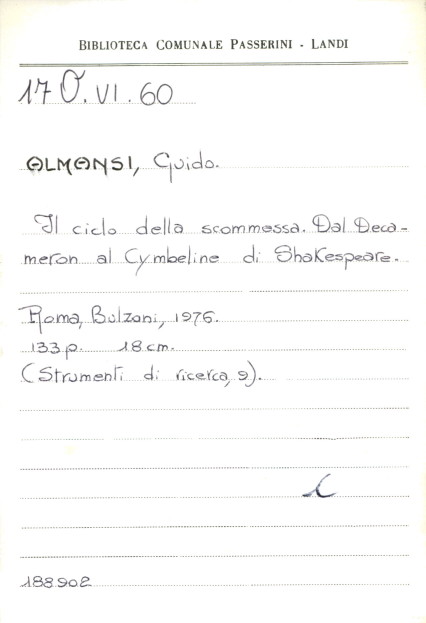 BIBLIOTECA COMUNALE PASSERINI - LANDI
17 O. VI. 60
ALMANSI, Guido.
Il ciclo della scommessa. Dal Deca-
meron al Cymbeline di Shakespeare.
Roma, Bulzoni, 1976.
133 p. 18 cm.
(Strumenti di ricerca, 9).
188.902